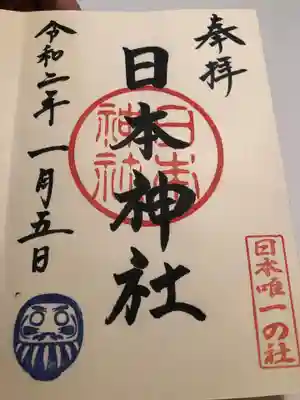 奉拝
日本神社
日本神社
日本唯一の社
令和二年一月五日